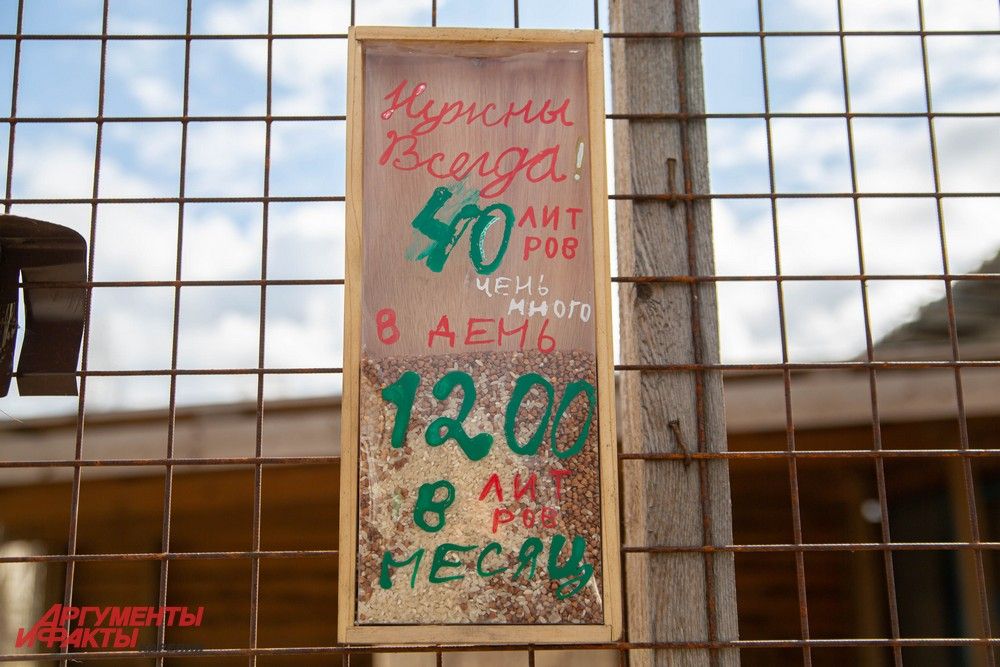 Нужны
Всегда!
40 ЛИТ
РОВ
ЧЕНЬ
МНОГО
В ДЕНЬ
1200
В ЛИТ
РОВ
МЕСЯЦ
АРГУМЕНТЫ
И ФАКТЫ